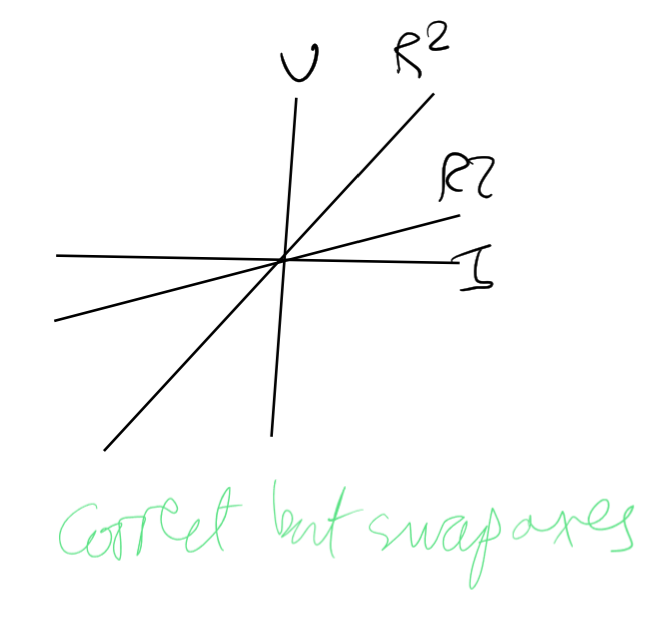 U
R²
R2
I
Correct but swap axes